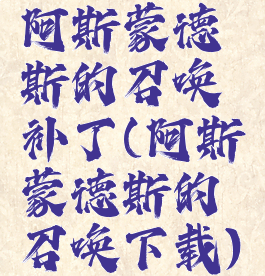 阿斯蒙德
斯的召唤
补丁(阿斯
蒙德斯的
召唤下载)